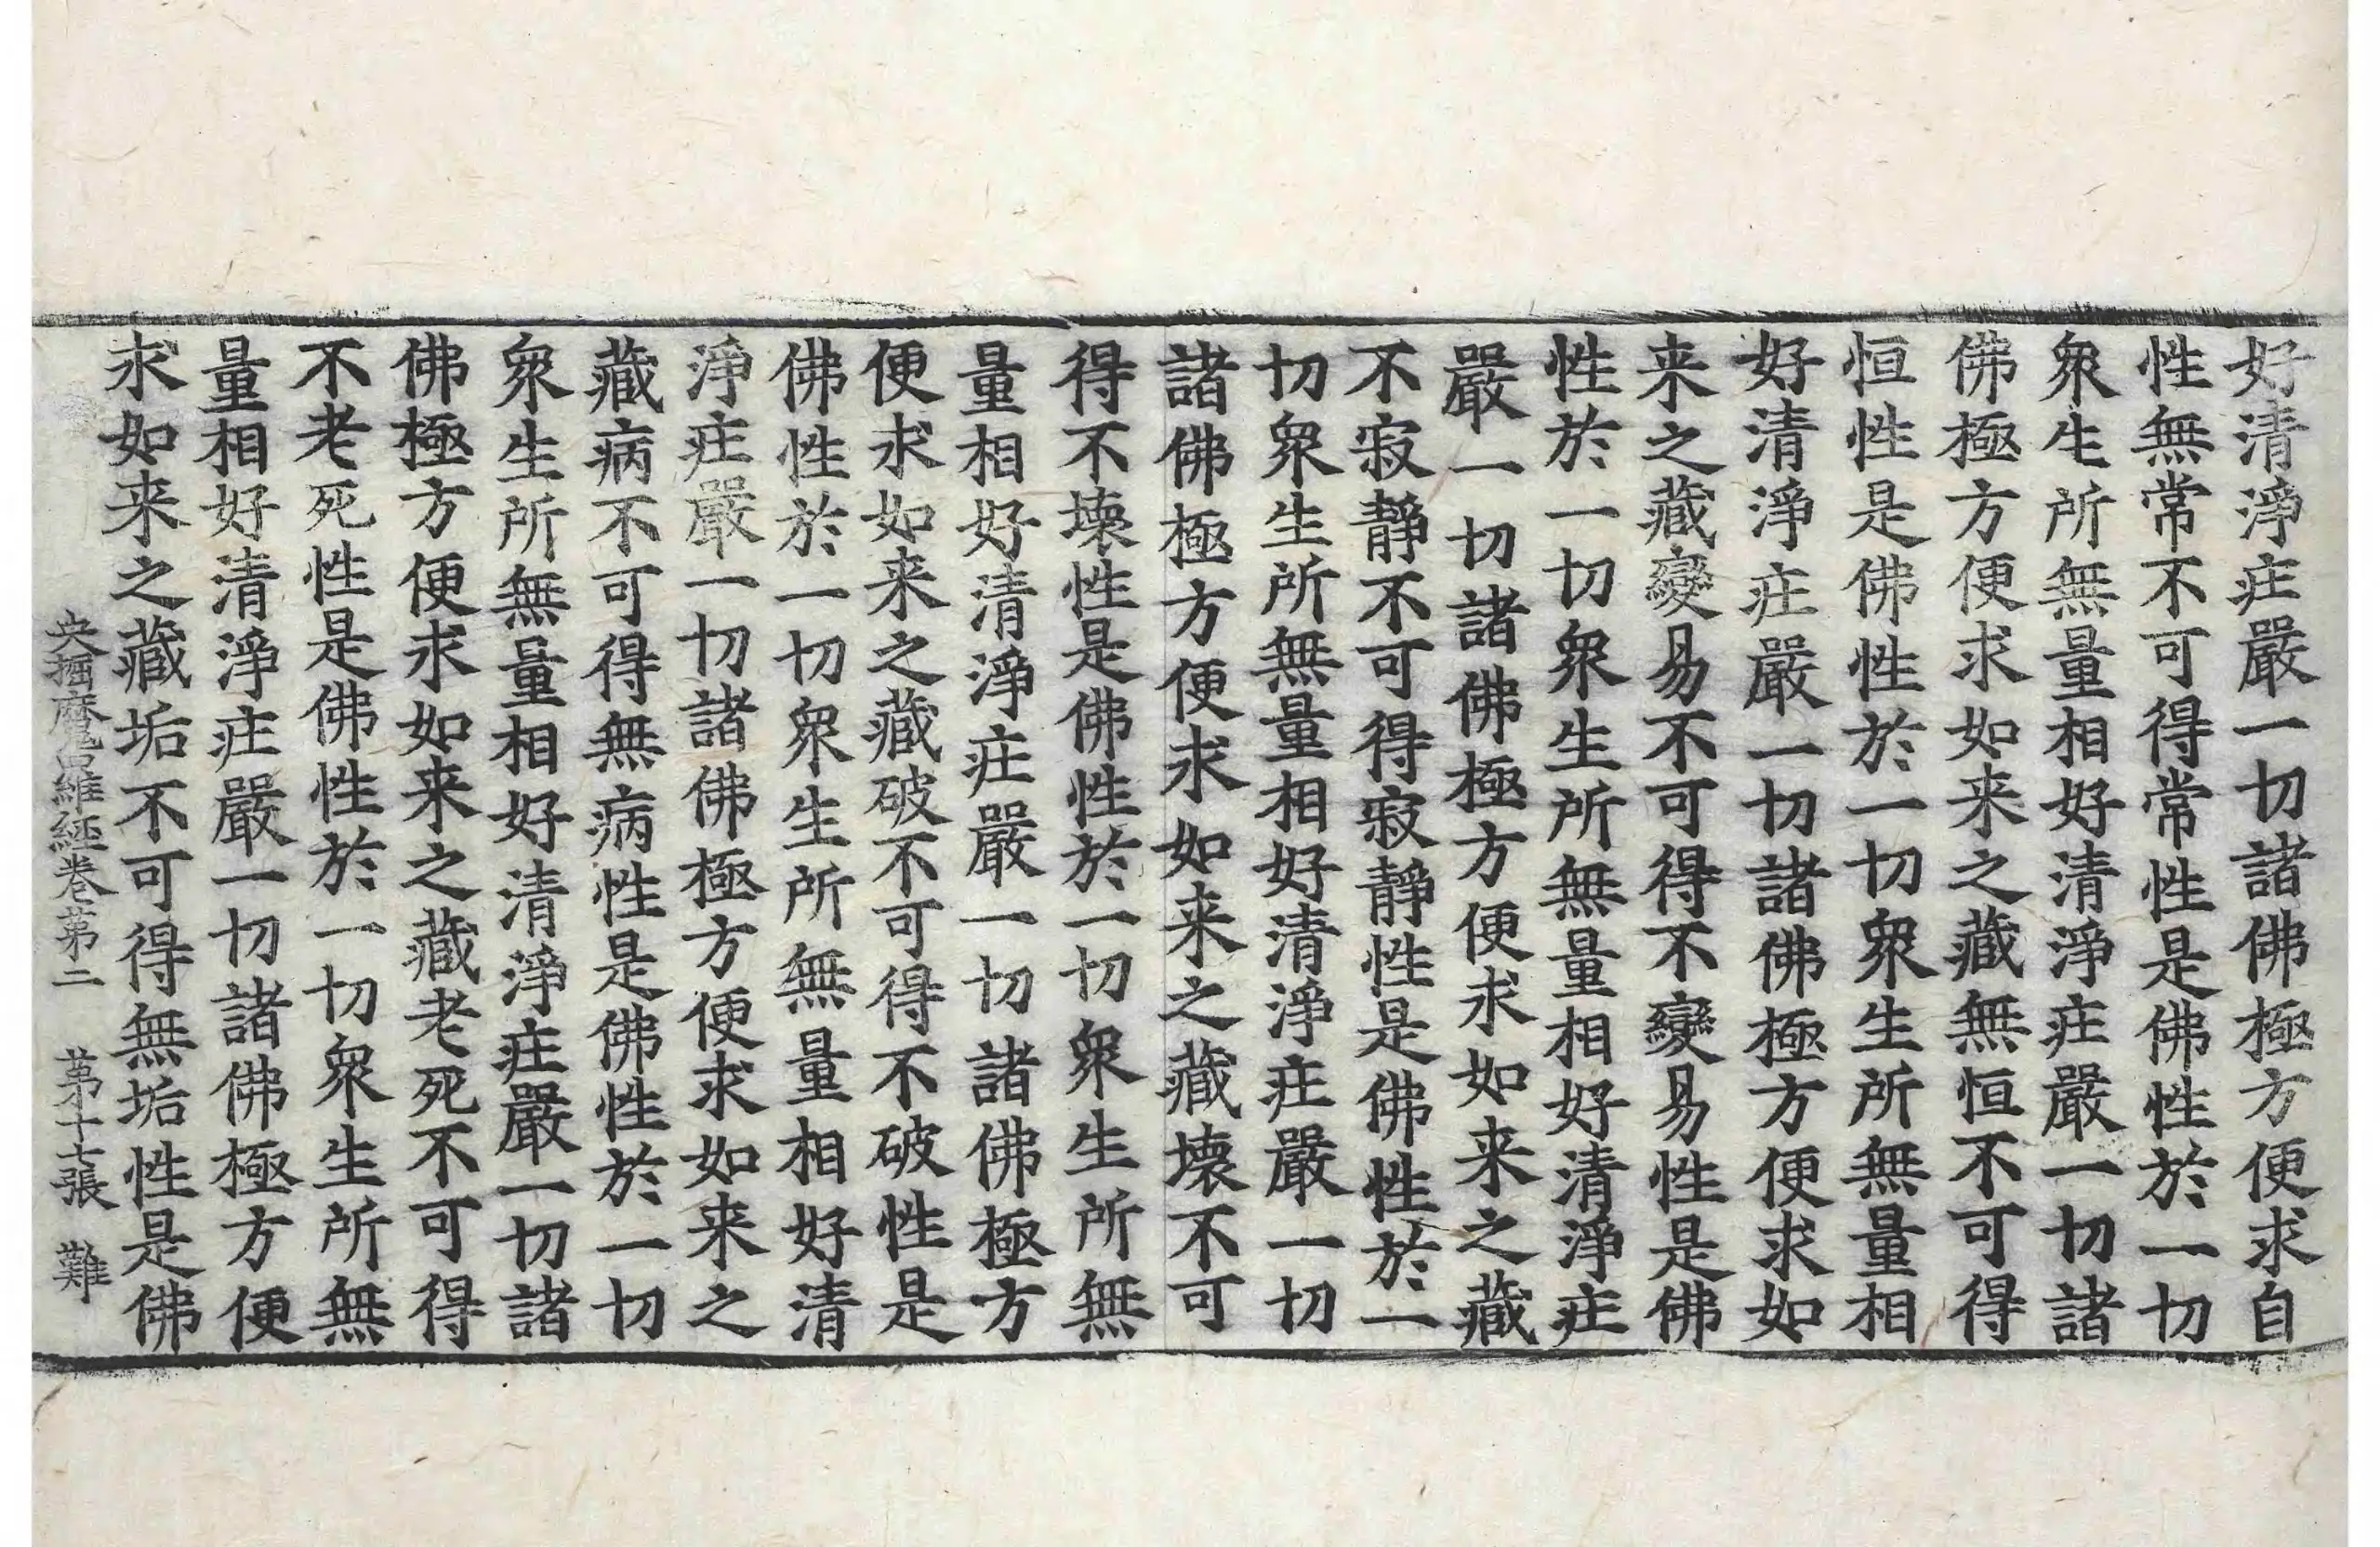 好清淨疘嚴一切諸佛極方便求自
性無常不可得常性是佛性於一切
衆生所無量相好清淨疘嚴一切諸
佛極方便求如来之藏無恒不可得
恒性是佛性於一切衆生所無量相
好清淨疘嚴一切諸佛極方便求如
来之藏變易不可得不變易性是佛
性於一切衆生所無量相好清淨疘
嚴一切諸佛極方便求如来之藏
不寂靜不可得寂靜性是佛性於一
切衆生所無量相好清淨疘嚴一切
諸佛極方便求如来之藏壞不可
得不壞性是佛性於一切衆生所無
量相好清淨疘嚴一切諸佛極方
便求如来之藏破不可得不破性是
佛性於一切衆生所無量相好清
淨疘嚴一切諸佛極方便求如来之
藏病不可得無病性是佛性於一切
衆生所無量相好清淨疘嚴一切諸
佛極方便求如来之藏老死不可得
不老死性是佛性於一切衆生所無
量相好清淨疘嚴一切諸佛極方便
求如来之藏垢不可得無垢性是佛
央掘魔羅經卷第二 第十七張 難